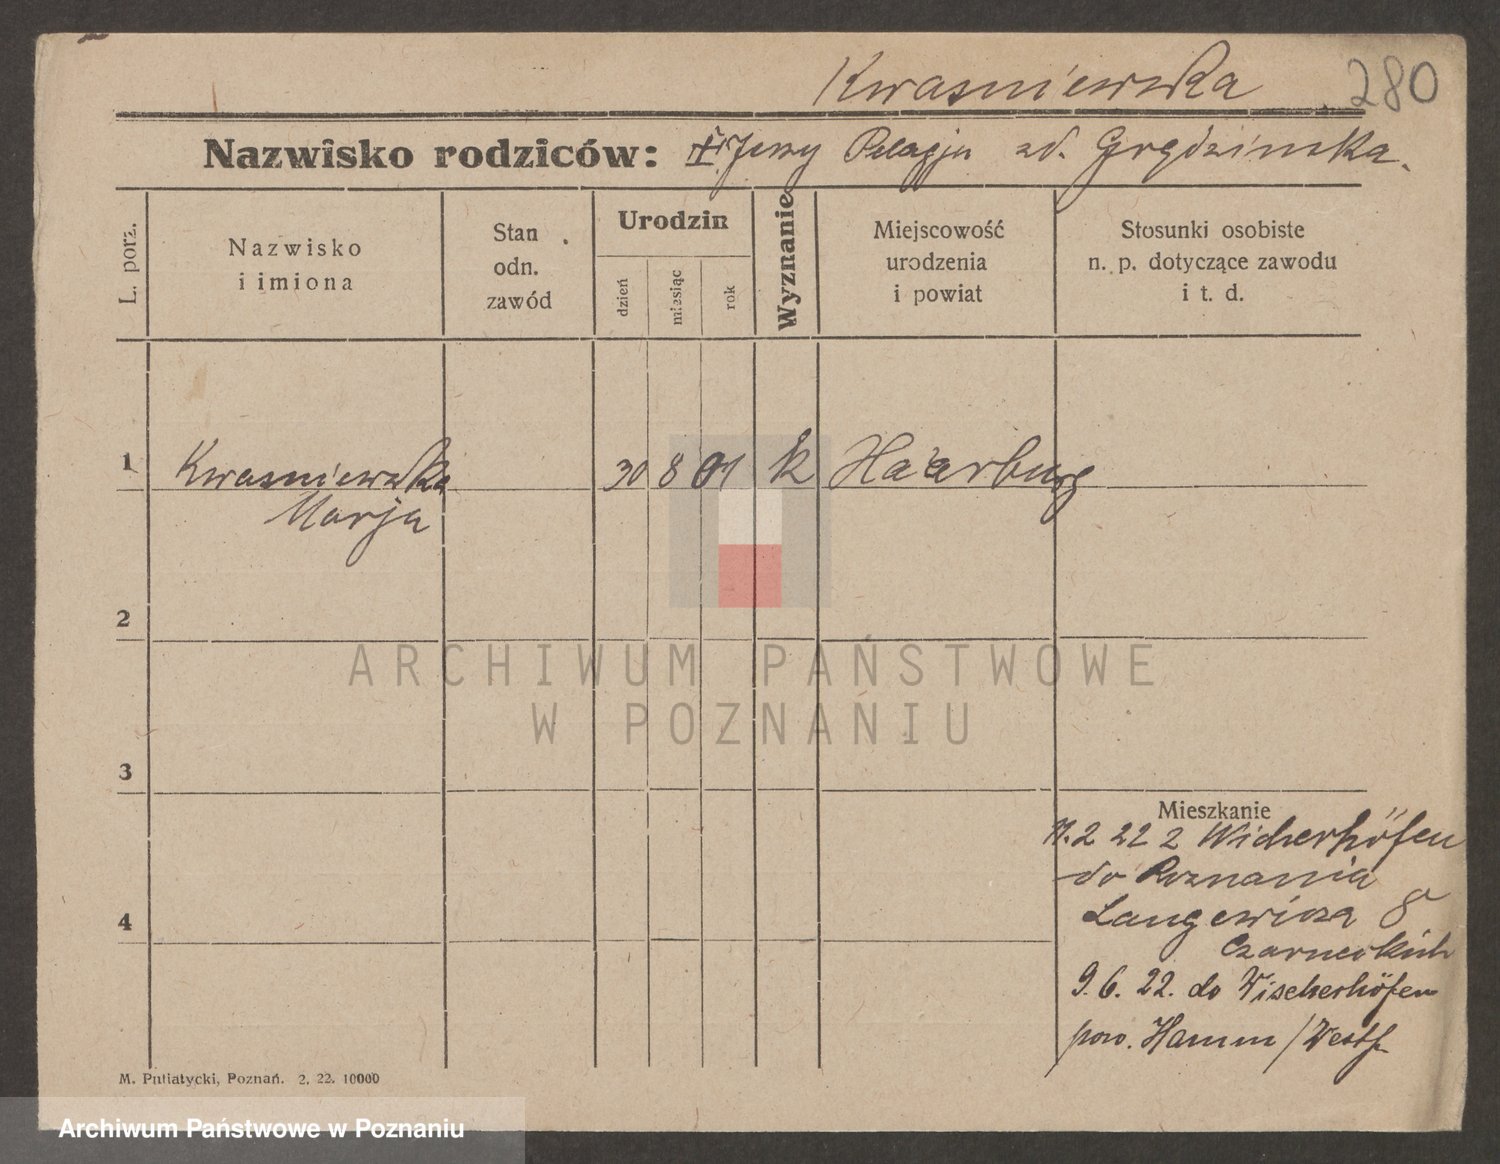 Kwasniewska 280
Nazwisko rodziców: Jerzy Pelagja zd. Grędzinska.
L. porz.
Nazwisko
i imiona
Stan
odn.
zawód
Urodzin
dzień
miesiąc
rok
Wyznanie
Miejscowość
urodzenia
i powiat
Stosunki osobiste
n. p. dotyczące zawodu
i t. d.
1 Kwasniewska 30 8 01 k Haarburg
Marja
2
3
4
Mieszkanie
2 22 z Wicherhöfen
do Poznania
Langewicza 8
Czarneckich
9.6.22. do Wischerhöfen
pow. Hamm / Westf.
M. Putiatycki, Poznań. 2. 22. 10000
ARCHIWUM PAŃSTWOWE
W POZNANIU
Archiwum Państwowe w Poznaniu